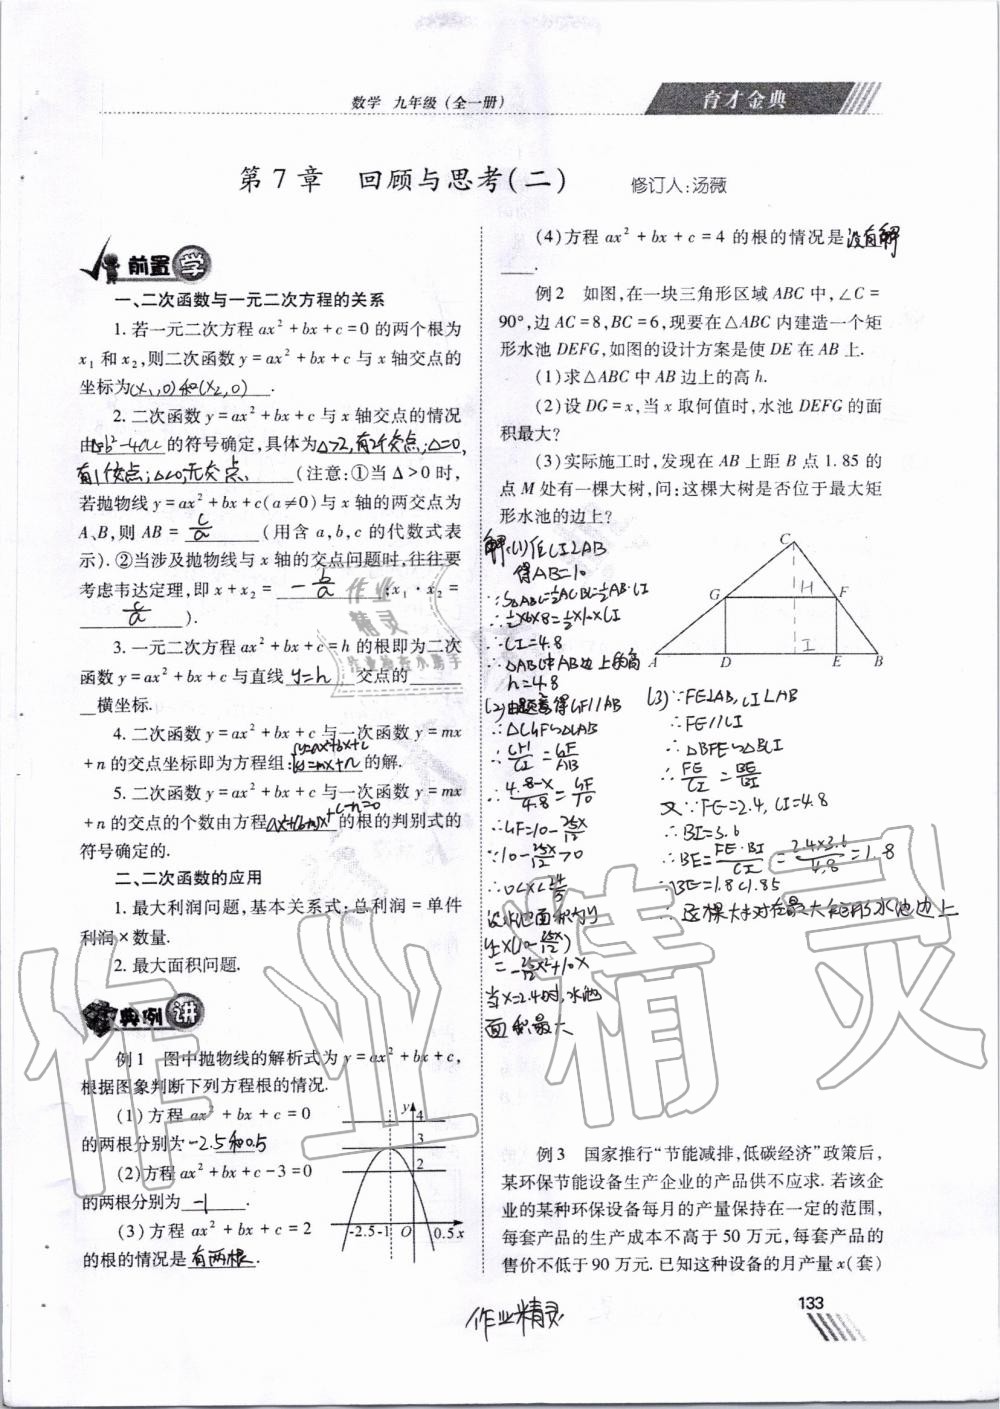 数学 九年级(全一册)
育才金典
第7章 回顾与思考(二)
修订人:汤薇
前置学
一、二次函数与一元二次方程的关系
1. 若一元二次方程 ax²+bx+c=0 的两个根为
x₁ 和 x₂,则二次函数 y=ax²+bx+c 与 x 轴交点的
坐标为(x₁,0)和(x₂,0).
2. 二次函数 y=ax²+bx+c 与 x 轴交点的情况
由Δ=b²-4ac的符号确定,具体为Δ>2,有2个交点;Δ=0,
有1个交点;Δ<0,无交点.(注意:①当 Δ>0 时,
若抛物线 y=ax²+bx+c(a≠0)与 x 轴的两交点为
A、B,则 AB=c/a(用含 a,b,c 的代数式表
示). ②当涉及抛物线与 x 轴的交点问题时,往往要
考虑韦达定理,即 x+x₂=-b/a;x₁·x₂=
c/a).
3. 一元二次方程 ax²+bx+c=h 的根即为二次
函数 y=ax²+bx+c 与直线 y=h 交点的
横坐标.
4. 二次函数 y=ax²+bx+c 与一次函数 y=mx
+n 的交点坐标即为方程组:{y=ax²+bx+c y=mx+n 的解.
5. 二次函数 y=ax²+bx+c 与一次函数 y=mx
+n 的交点的个数由方程ax²+(b-m)x+c-n=0的根的判别式的
符号确定的.
二、二次函数的应用
1. 最大利润问题,基本关系式:总利润=单件
利润×数量.
2. 最大面积问题.
典例讲
例1 图中抛物线的解析式为 y=ax²+bx+c,
根据图象判断下列方程根的情况.
(1)方程 ax²+bx+c=0
的两根分别为-2.5和0.5
(2)方程 ax²+bx+c-3=0
的两根分别为 -1 .
(3)方程 ax²+bx+c=2
的根的情况是 有两根 .
y
4
3
2
-2.5 -1 O 0.5 x
(4)方程 ax²+bx+c=4 的根的情况是 没有解
.
例2 如图,在一块三角形区域 ABC 中,∠C=
90°,边 AC=8,BC=6,现要在△ABC 内建造一个矩
形水池 DEFG,如图的设计方案是使 DE 在 AB 上.
(1)求△ABC 中 AB 边上的高 h.
(2)设 DG=x,当 x 取何值时,水池 DEFG 的面
积最大?
(3)实际施工时,发现在 AB 上距 B 点 1.85 的
点 M 处有一棵大树,问:这棵大树是否位于最大矩
形水池的边上?
解:(1)作CI⊥AB
得AB=10
∵S△ABC=½AC·BC=½AB·CI
∴½×6×8=½×10×CI
∴CI=4.8
∴△ABC中AB边上的高
h=4.8
(2)由题意得GF∥AB
∴△CGF∽△CAB
∴CH/CI=GF/AB
∴4.8-x/4.8=GF/10
∴GF=10-25x/12
∵10-25x/12>0
∴0<x<24/5
设水池面积为y
y=x(10-25x/12)
=-25/12x²+10x
当x=2.4时,水池
面积最大
C
G H F
A D I E B
(3)∵FE⊥AB,CI⊥AB
∴FE∥CI
∴△BFE∽△BCI
∴FE/CI=BE/BI
又∵FE=2.4,CI=4.8
∴BI=3.6
∴BE=FE·BI/CI=2.4×3.6/4.8=1.8
∴BE=1.8<1.85
∴这棵大树不在最大矩形水池边上
例3 国家推行“节能减排,低碳经济”政策后,
某环保节能设备生产企业的产品供不应求. 若该企
业的某种环保设备每月的产量保持在一定的范围,
每套产品的生产成本不高于 50 万元,每套产品的
售价不低于 90 万元. 已知这种设备的月产量 x(套)
133
作业精灵
作业精灵